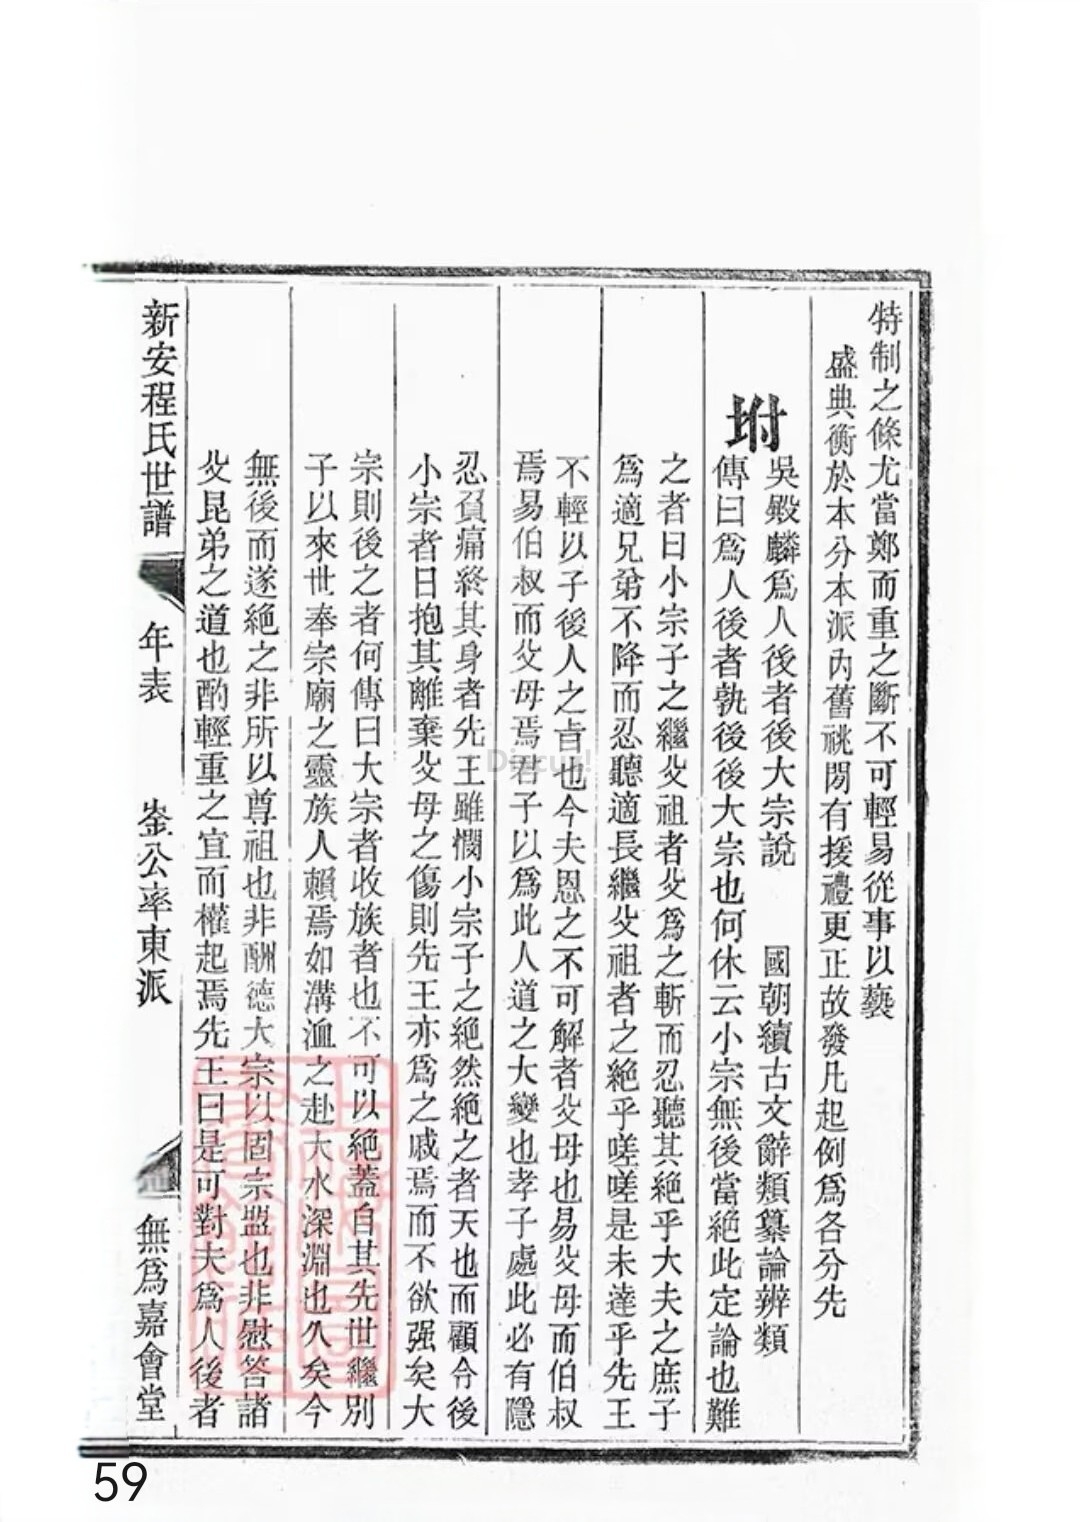 特制之條尤當鄭而重之斷不可輕易從事以褻
盛典衡於本分本派內舊祧閒有援禮更正故發凡起例爲各分先
坿
吳殿麟爲人後者後大宗說 國朝續古文辭類纂論辨類
傳曰爲人後者孰後後大宗也何休云小宗無後當絕此定論也難
之者曰小宗子之繼父祖者父爲之斬而忍聽其絕乎大夫之庶子
爲適兄弟不降而忍聽適長繼父祖者之絕乎嗟嗟是未達乎先王
不輕以子後人之旨也今夫恩之不可解者父母也易父母而伯叔
焉易伯叔而父母焉君子以爲此人道之大變也孝子處此必有隱
忍負痛終其身者先王雖憫小宗子之絕然絕之者天也而顧令後
小宗者日抱其離棄父母之傷則先王亦爲之戚焉而不欲强矣大
宗則後之者何傳曰大宗者收族者也不可以絕蓋自其先世繼別
子以來世奉宗廟之靈族人賴焉如溝洫之赴大水深淵也久矣今
無後而遂絕之非所以尊祖也非酬德大宗以固宗盟也非慰答諸
父昆弟之道也酌輕重之宜而權起焉先王曰是可對夫爲人後者
新安程氏世譜 年表 崟公率東派 無爲嘉會堂
59